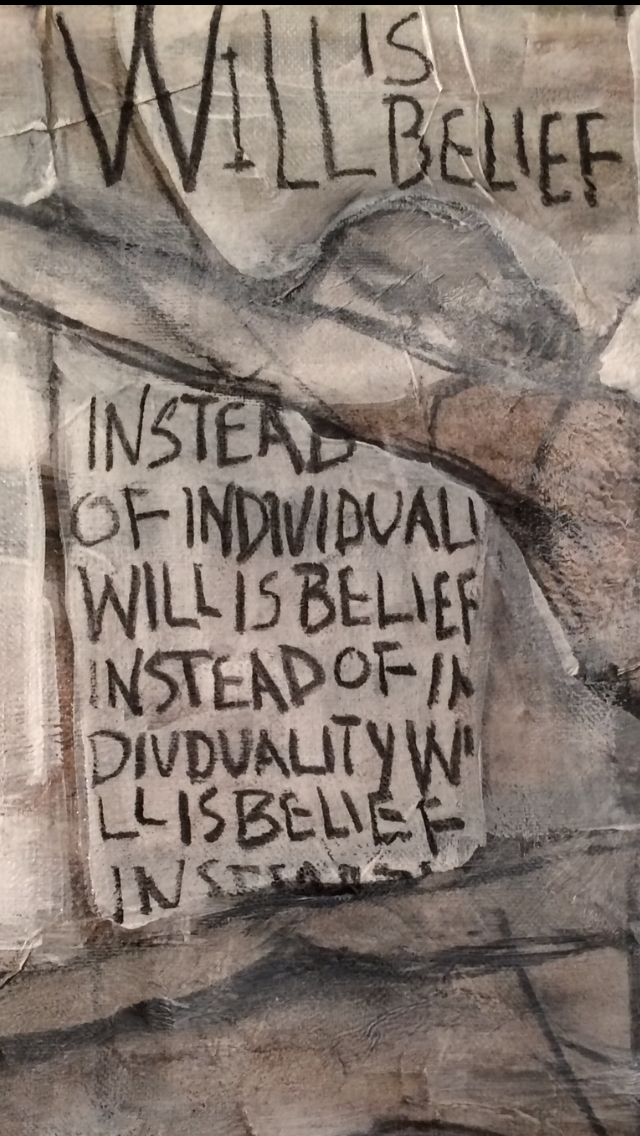 WILL IS
BELIEF
INSTEAD
OF INDIVIDUALI
WILL IS BELIEF
INSTEAD OF IN
DIVDUALITY WI
LL IS BELIEF
INSTEAD OF